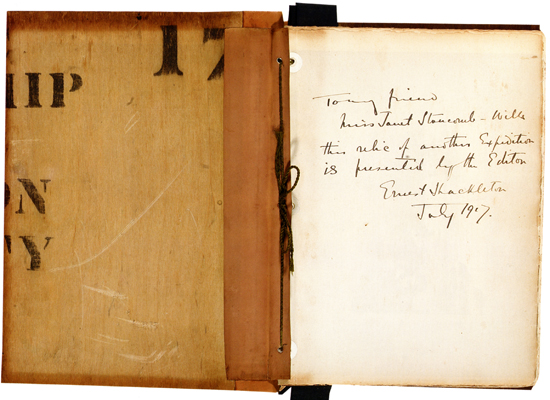 17
HIP
ON
TY
To my friend
Miss Janet Stancomb-Wills
this relic of another Expedition
is presented by the Editor
Ernest Shackleton
July 1917.